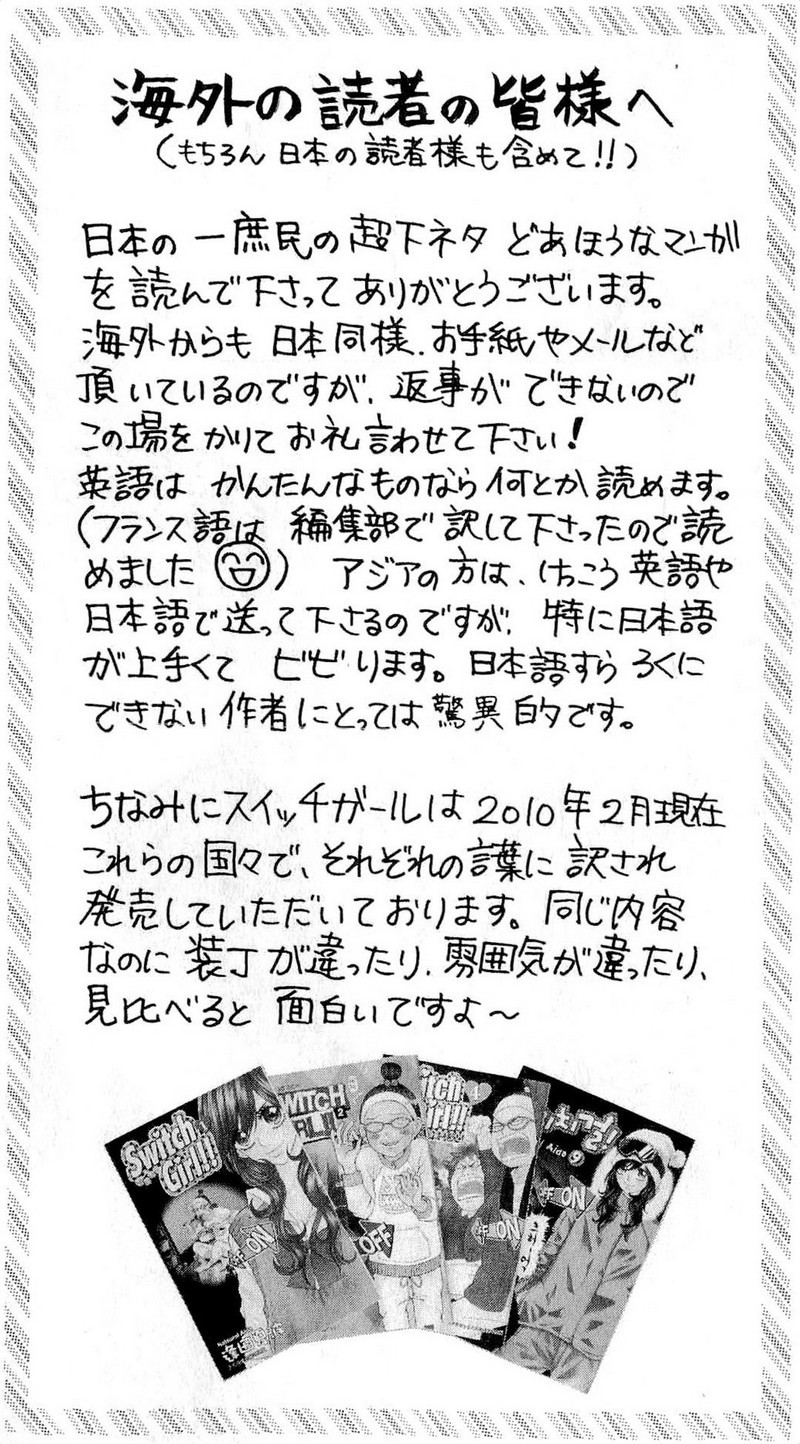 海外の読者の皆様へ
(もちろん日本の読者様も含めて!!)
日本の一庶民の超下ネタ どあほうなマンガ
を読んで下さってありがとうございます。
海外からも日本同様、お手紙やメールなど
頂いているのですが、返事ができないので
この場をかりてお礼言わせて下さい!
英語は かんたんなものなら何とか読めます。
(フランス語は 編集部で訳して下さったので読
めました) アジアの方は、けっこう英語や
日本語で送って下さるのですが、特に日本語
が上手くて ビビります。日本語すら ろくに
できない作者にとっては驚異的です。
ちなみにスイッチガールは2010年2月現在
これらの国々で、それぞれの言葉に訳され
発売していただいております。同じ内容
なのに装丁が違ったり、雰囲気が違ったり、
見比べると 面白いですよ〜
Switch Girl!!
ON
WITCH
2
OFF
itch
Girl!!
ON
Aida 9
ON